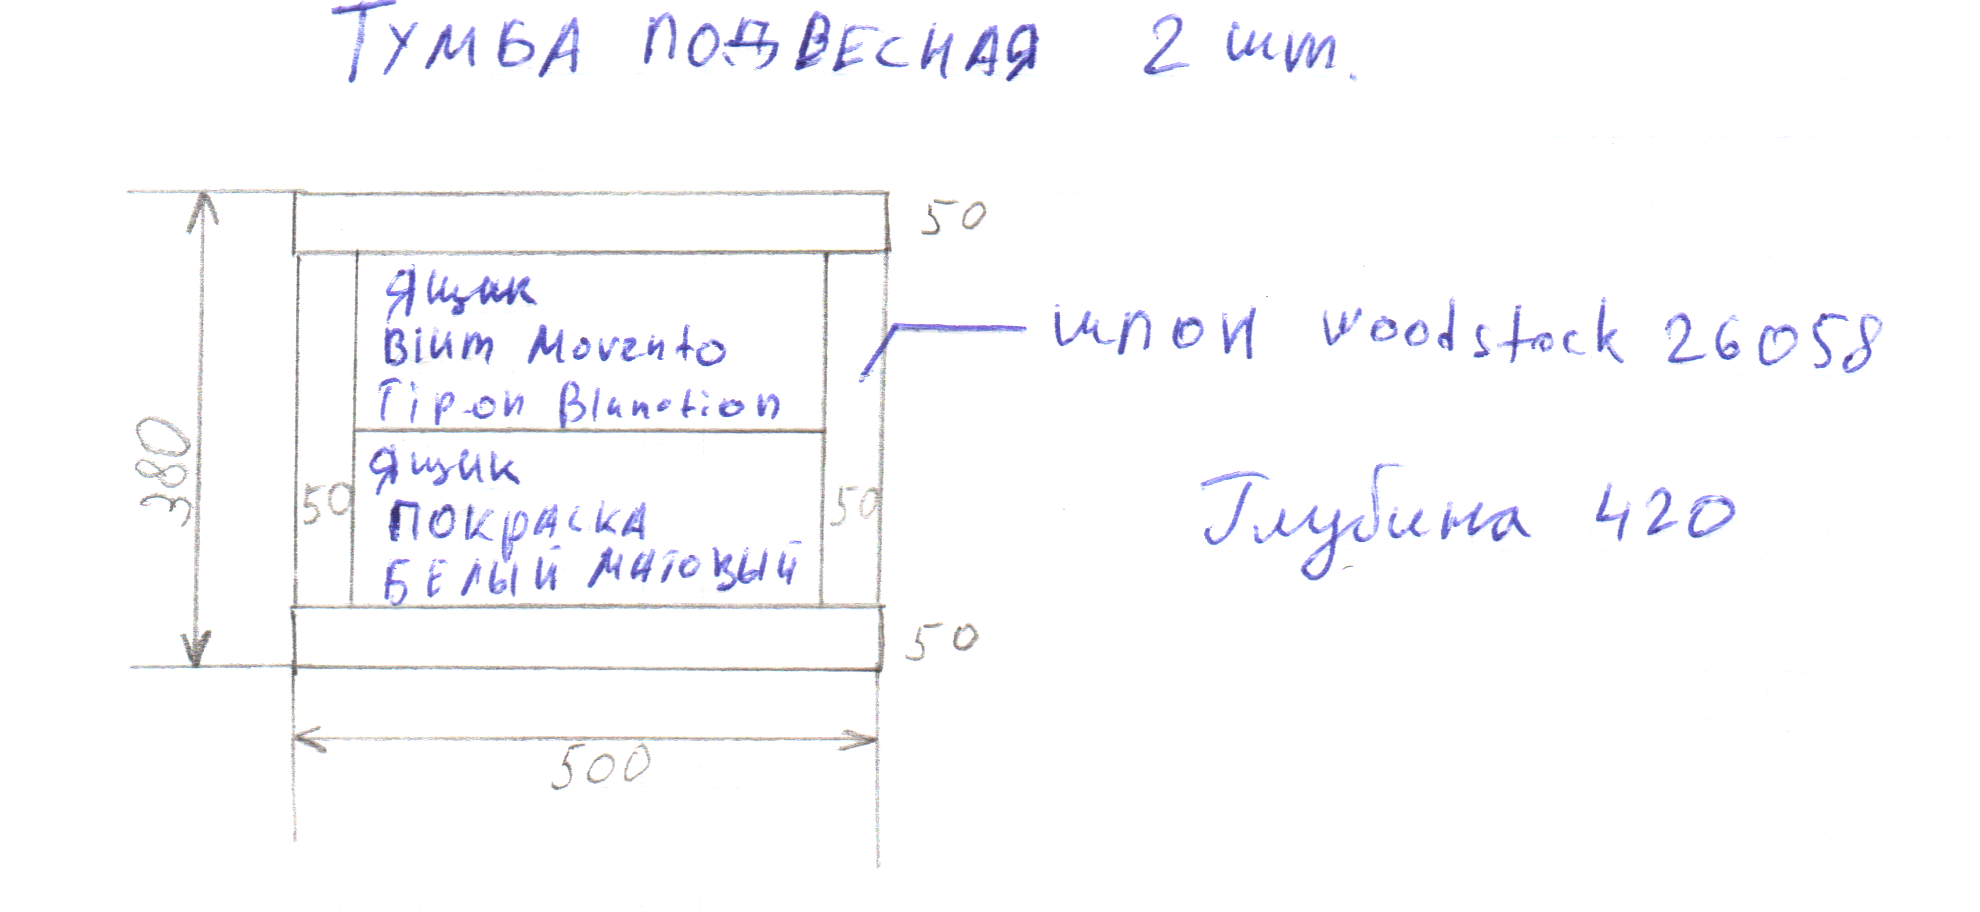 ТУМБА ПОДВЕСНАЯ 2 шт.
50
Ящик
Blum Movento
Tip-on Blumotion
шпон woodstock 26058
380
Ящик
50
50
ПОКРАСКА
БЕЛЫЙ МАТОВЫЙ
Глубина 420
50
500